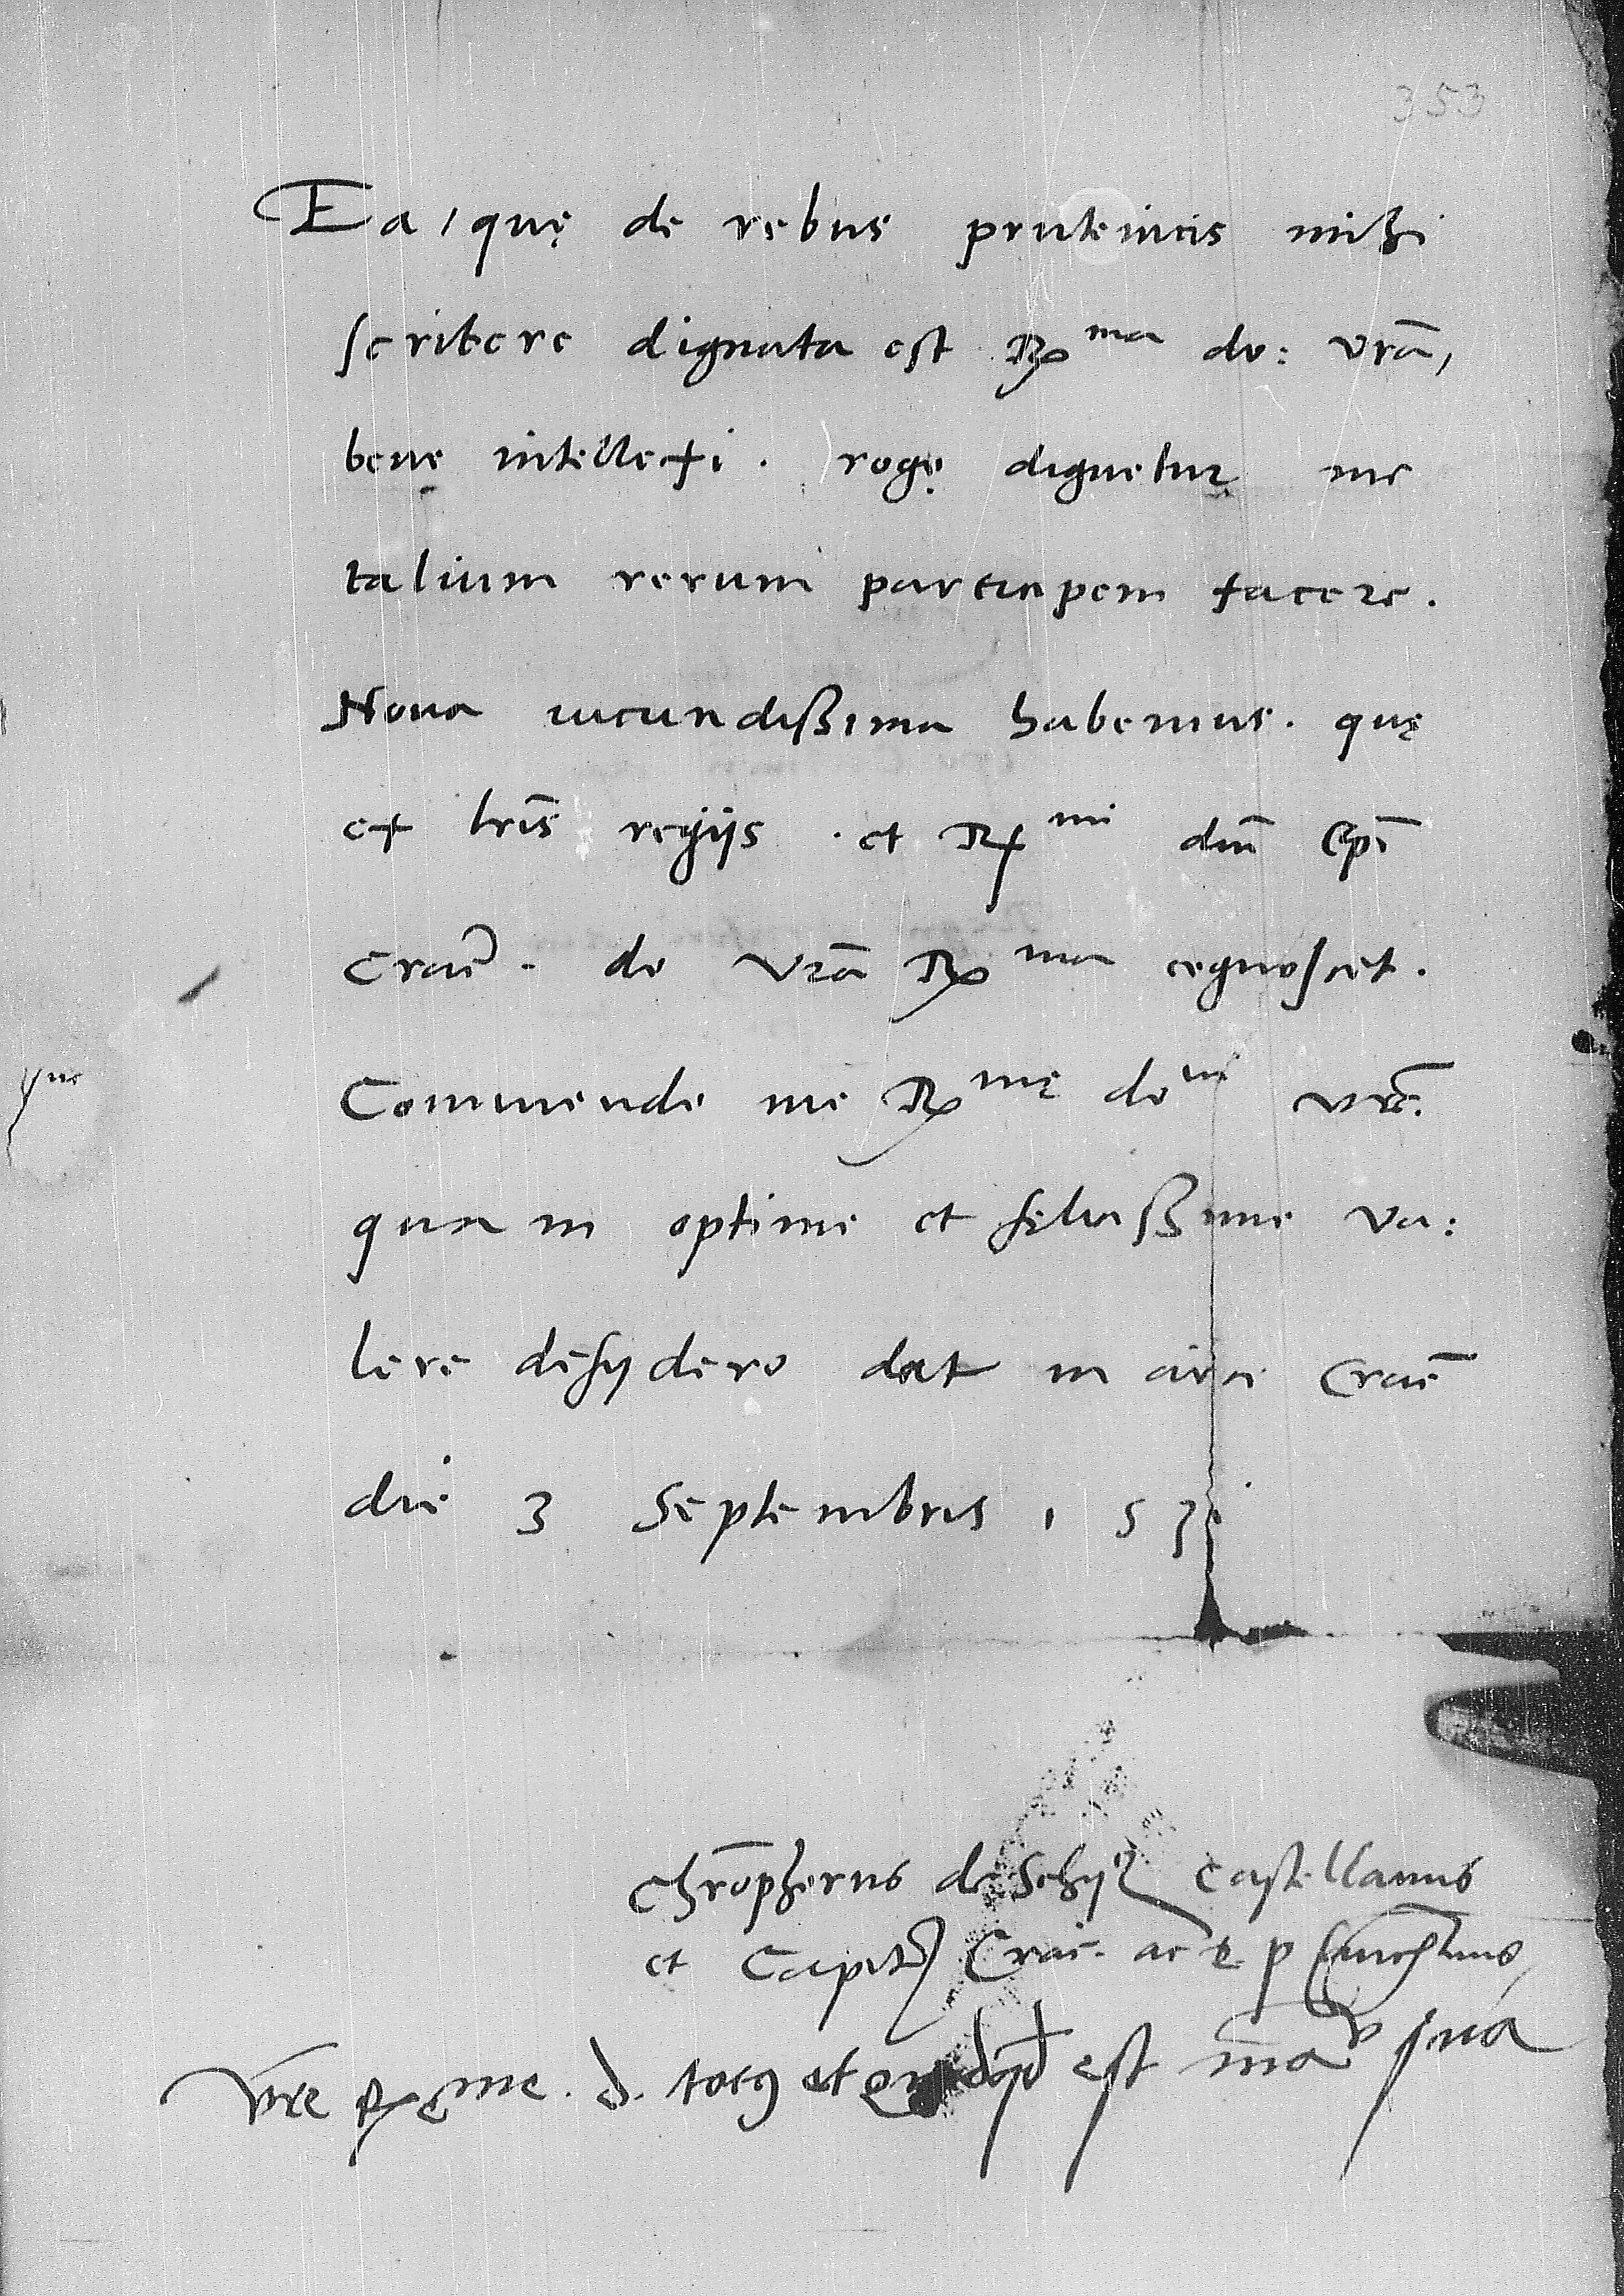 353
Ea, quę de rebus prutenicis mihi
scribere dignata est R ma do: vrā,
bene intellexi. rogo dignetur me
talium rerum participem facere.
Nova iucundißima habemus. quę
ex lrīs regijs. et R mi dnī Epī
Cracē. do vrā R ma cognoscet.
Commendo me R mę do ni vrē.
quam optime et feliciß ime va:
lere desydero dat in arce Cracē
die 3 Septembris 1531
Chrōpherus de Schijdl Castellanus
et Capits Crac. ac R. p
Vrē R me. d. totꝯ et est mā sua